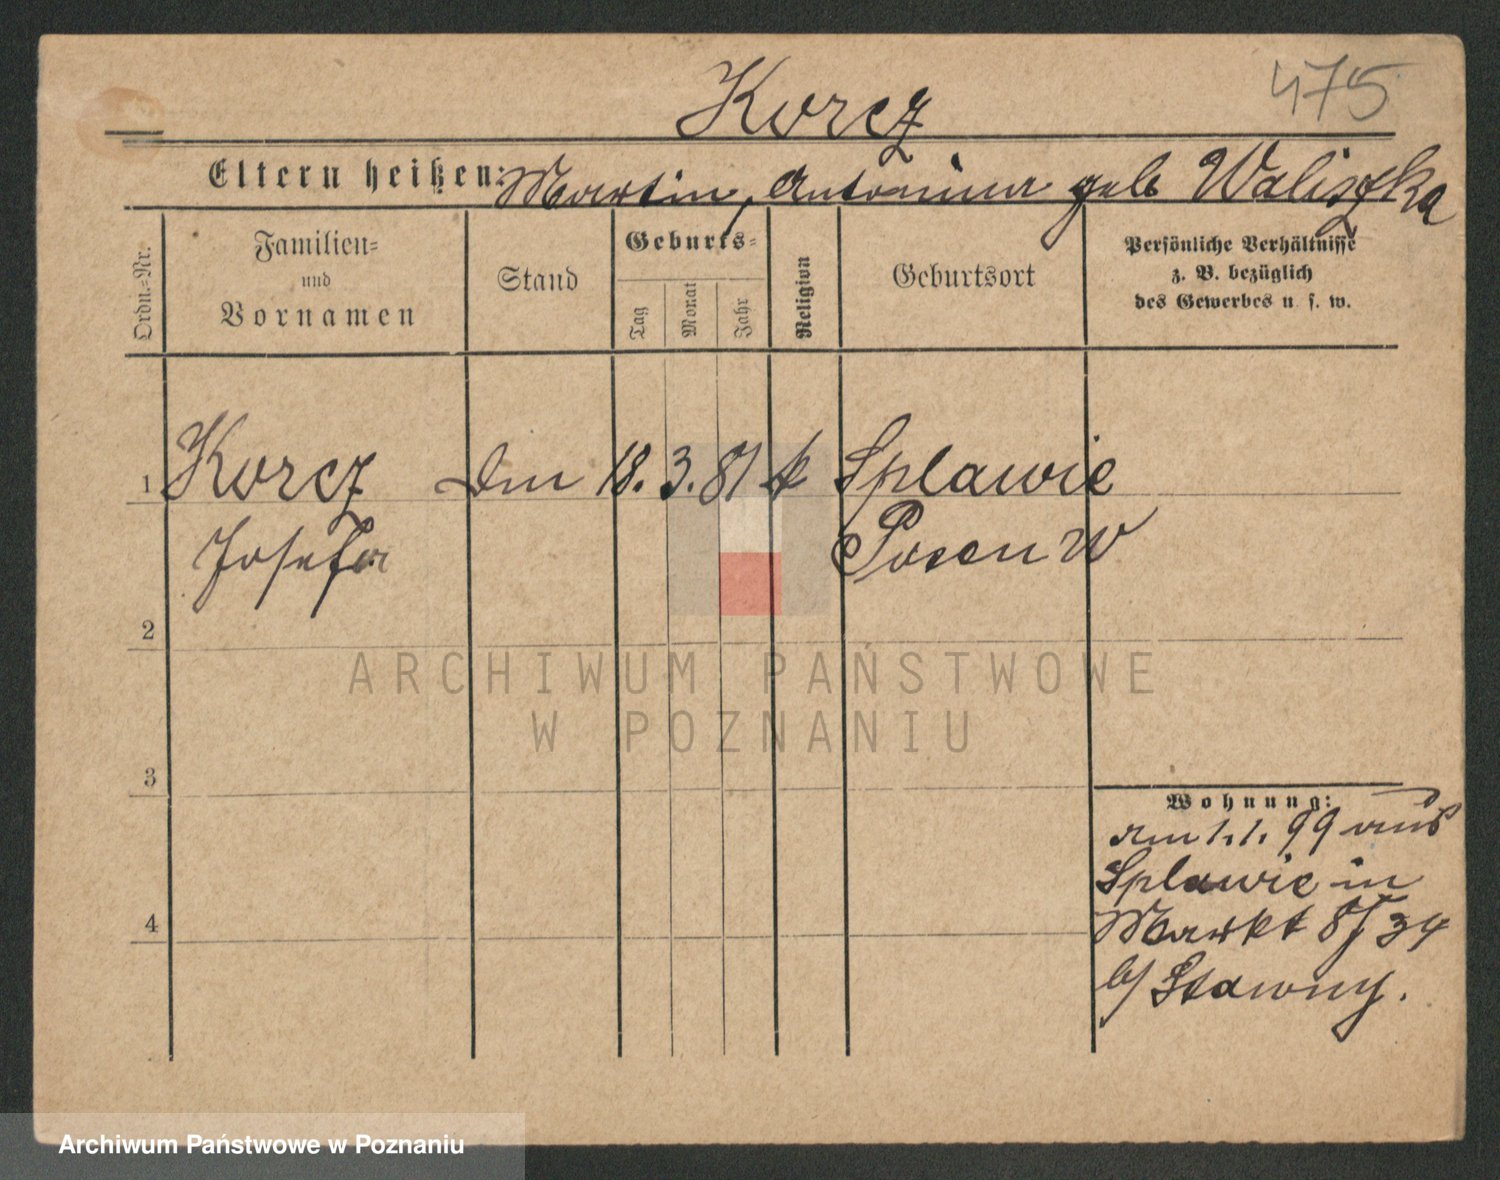 Korcz
475
Eltern heißen: Martin, Antonina geb Waliszka
Ordn.-Nr.
Familien-
und
Vornamen
Stand
Geburts-
Tag
Monat
Jahr
Religion
Geburtsort
Persönliche Verhältnisse
z. B. bezüglich
des Gewerbes u. s. w.
1 Korcz Dm 18. 3. 81 k Splawie
Josefa Posen W
2
ARCHIWUM PAŃSTWOWE
W POZNANIU
3
Wohnung:
am 1.1. 99 aus
Splawie in
4
Markt 8/ 34
b/ Stawny.
Archiwum Państwowe w Poznaniu